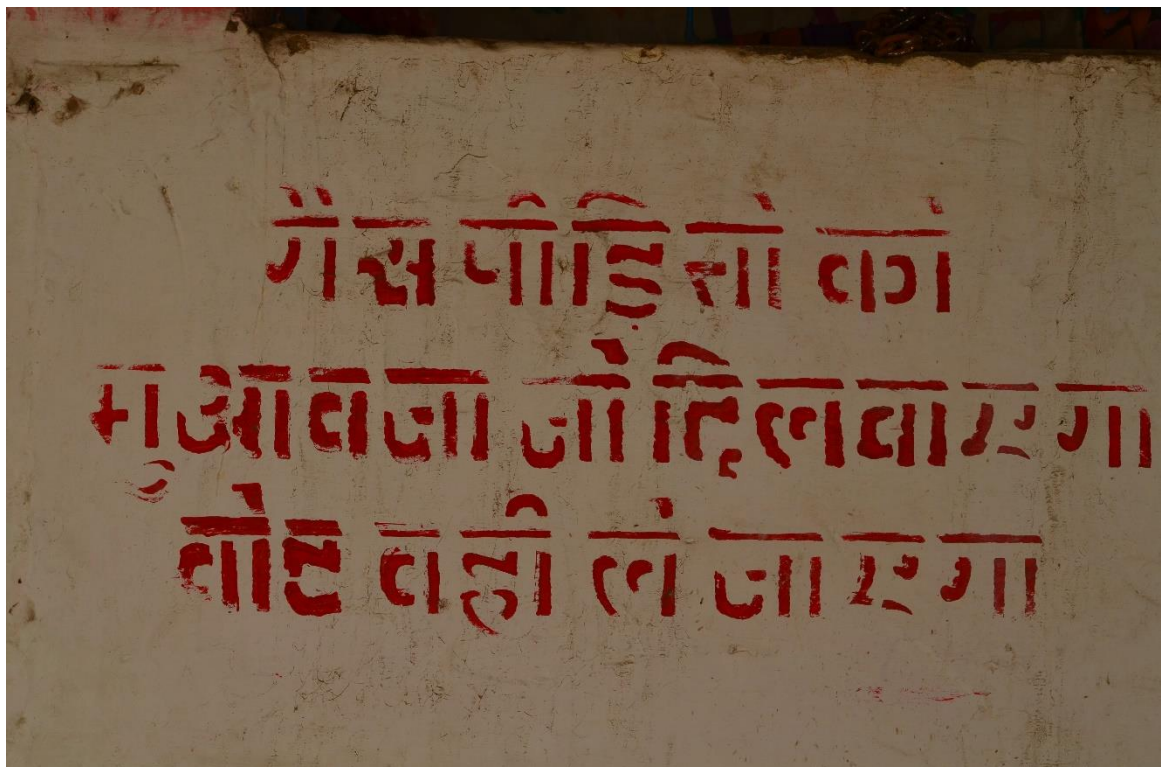 गैस पीड़ितो को
मुआवजा जो दिलवाएगा
वोट वही ले जाएगा